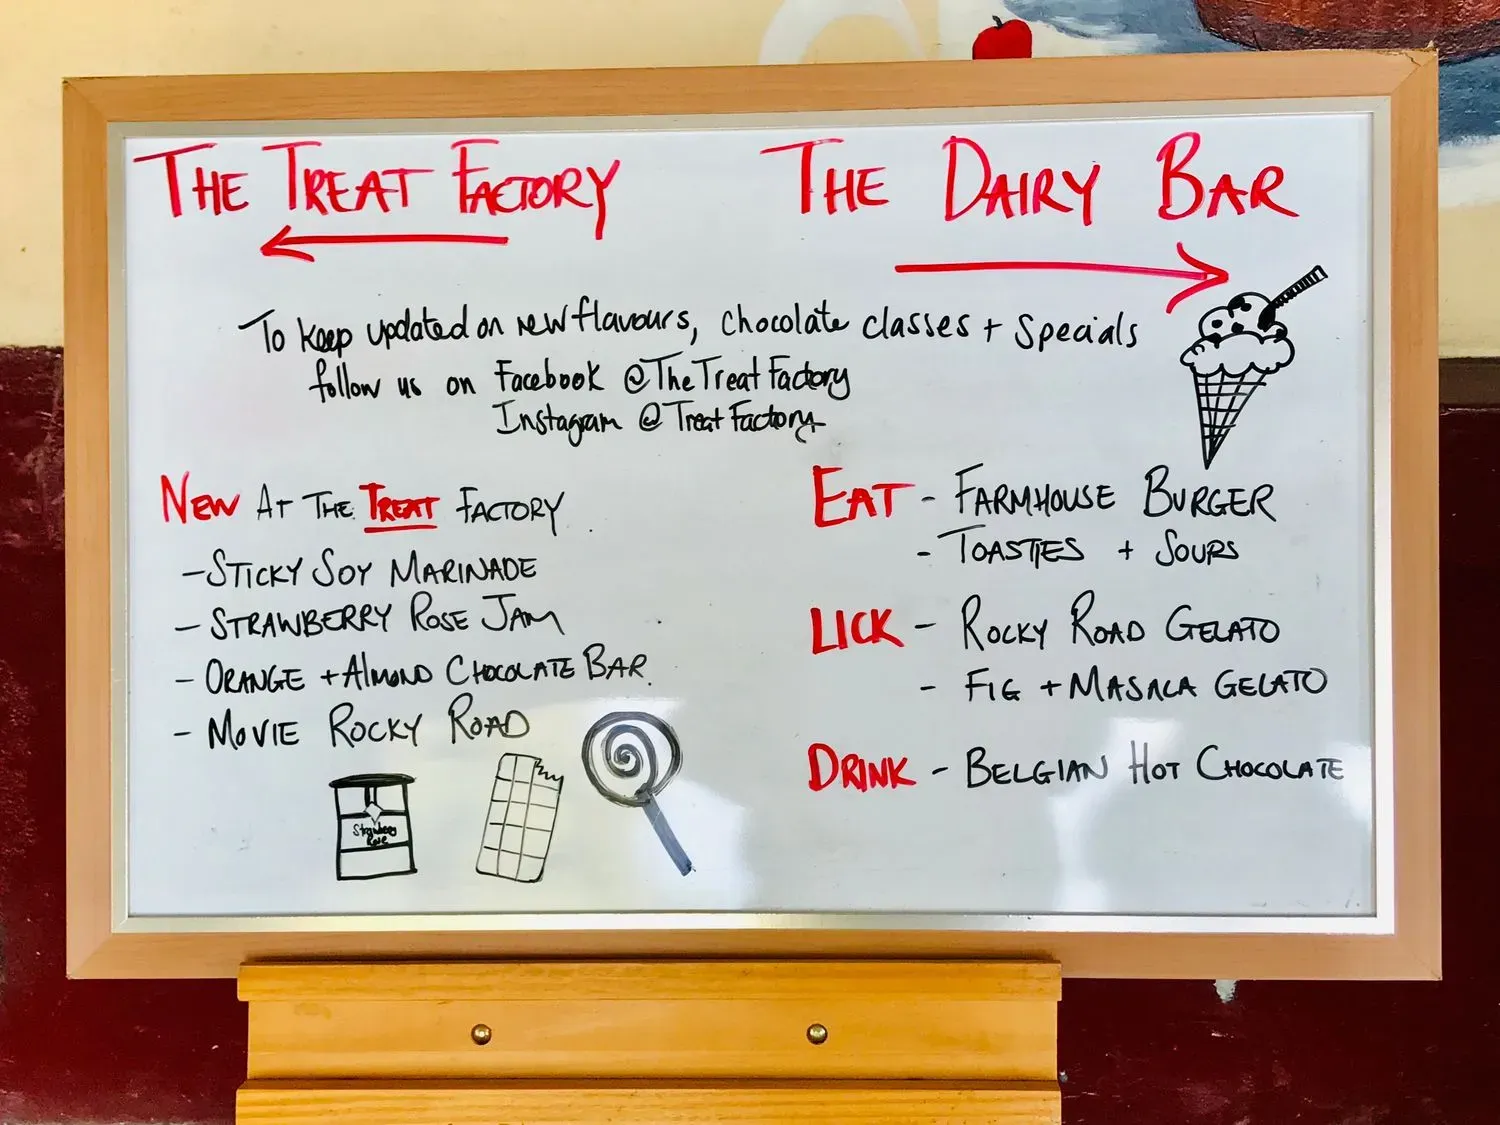 THE TREAT FACTORY
THE DAIRY BAR
To keep updated on new flavours, chocolate classes + specials
follow us on Facebook @TheTreatFactory
Instagram @TreatFactory
NEW AT THE TREAT FACTORY
- STICKY SOY MARINADE
- STRAWBERRY ROSE JAM
- ORANGE + ALMOND CHOCOLATE BAR.
- MOVIE ROCKY ROAD
Strawberry
Rose
EAT - FARMHOUSE BURGER
- TOASTIES + SOURS
LICK - ROCKY ROAD GELATO
- FIG + MASALA GELATO
DRINK - BELGIAN HOT CHOCOLATE